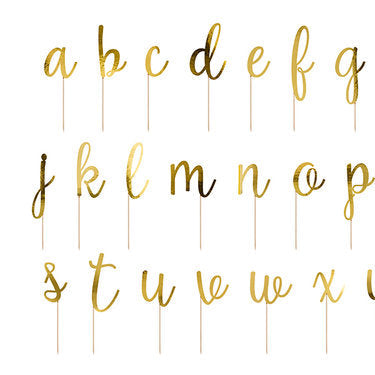 a b c d e f g
j k l m n o p
s t u v w x